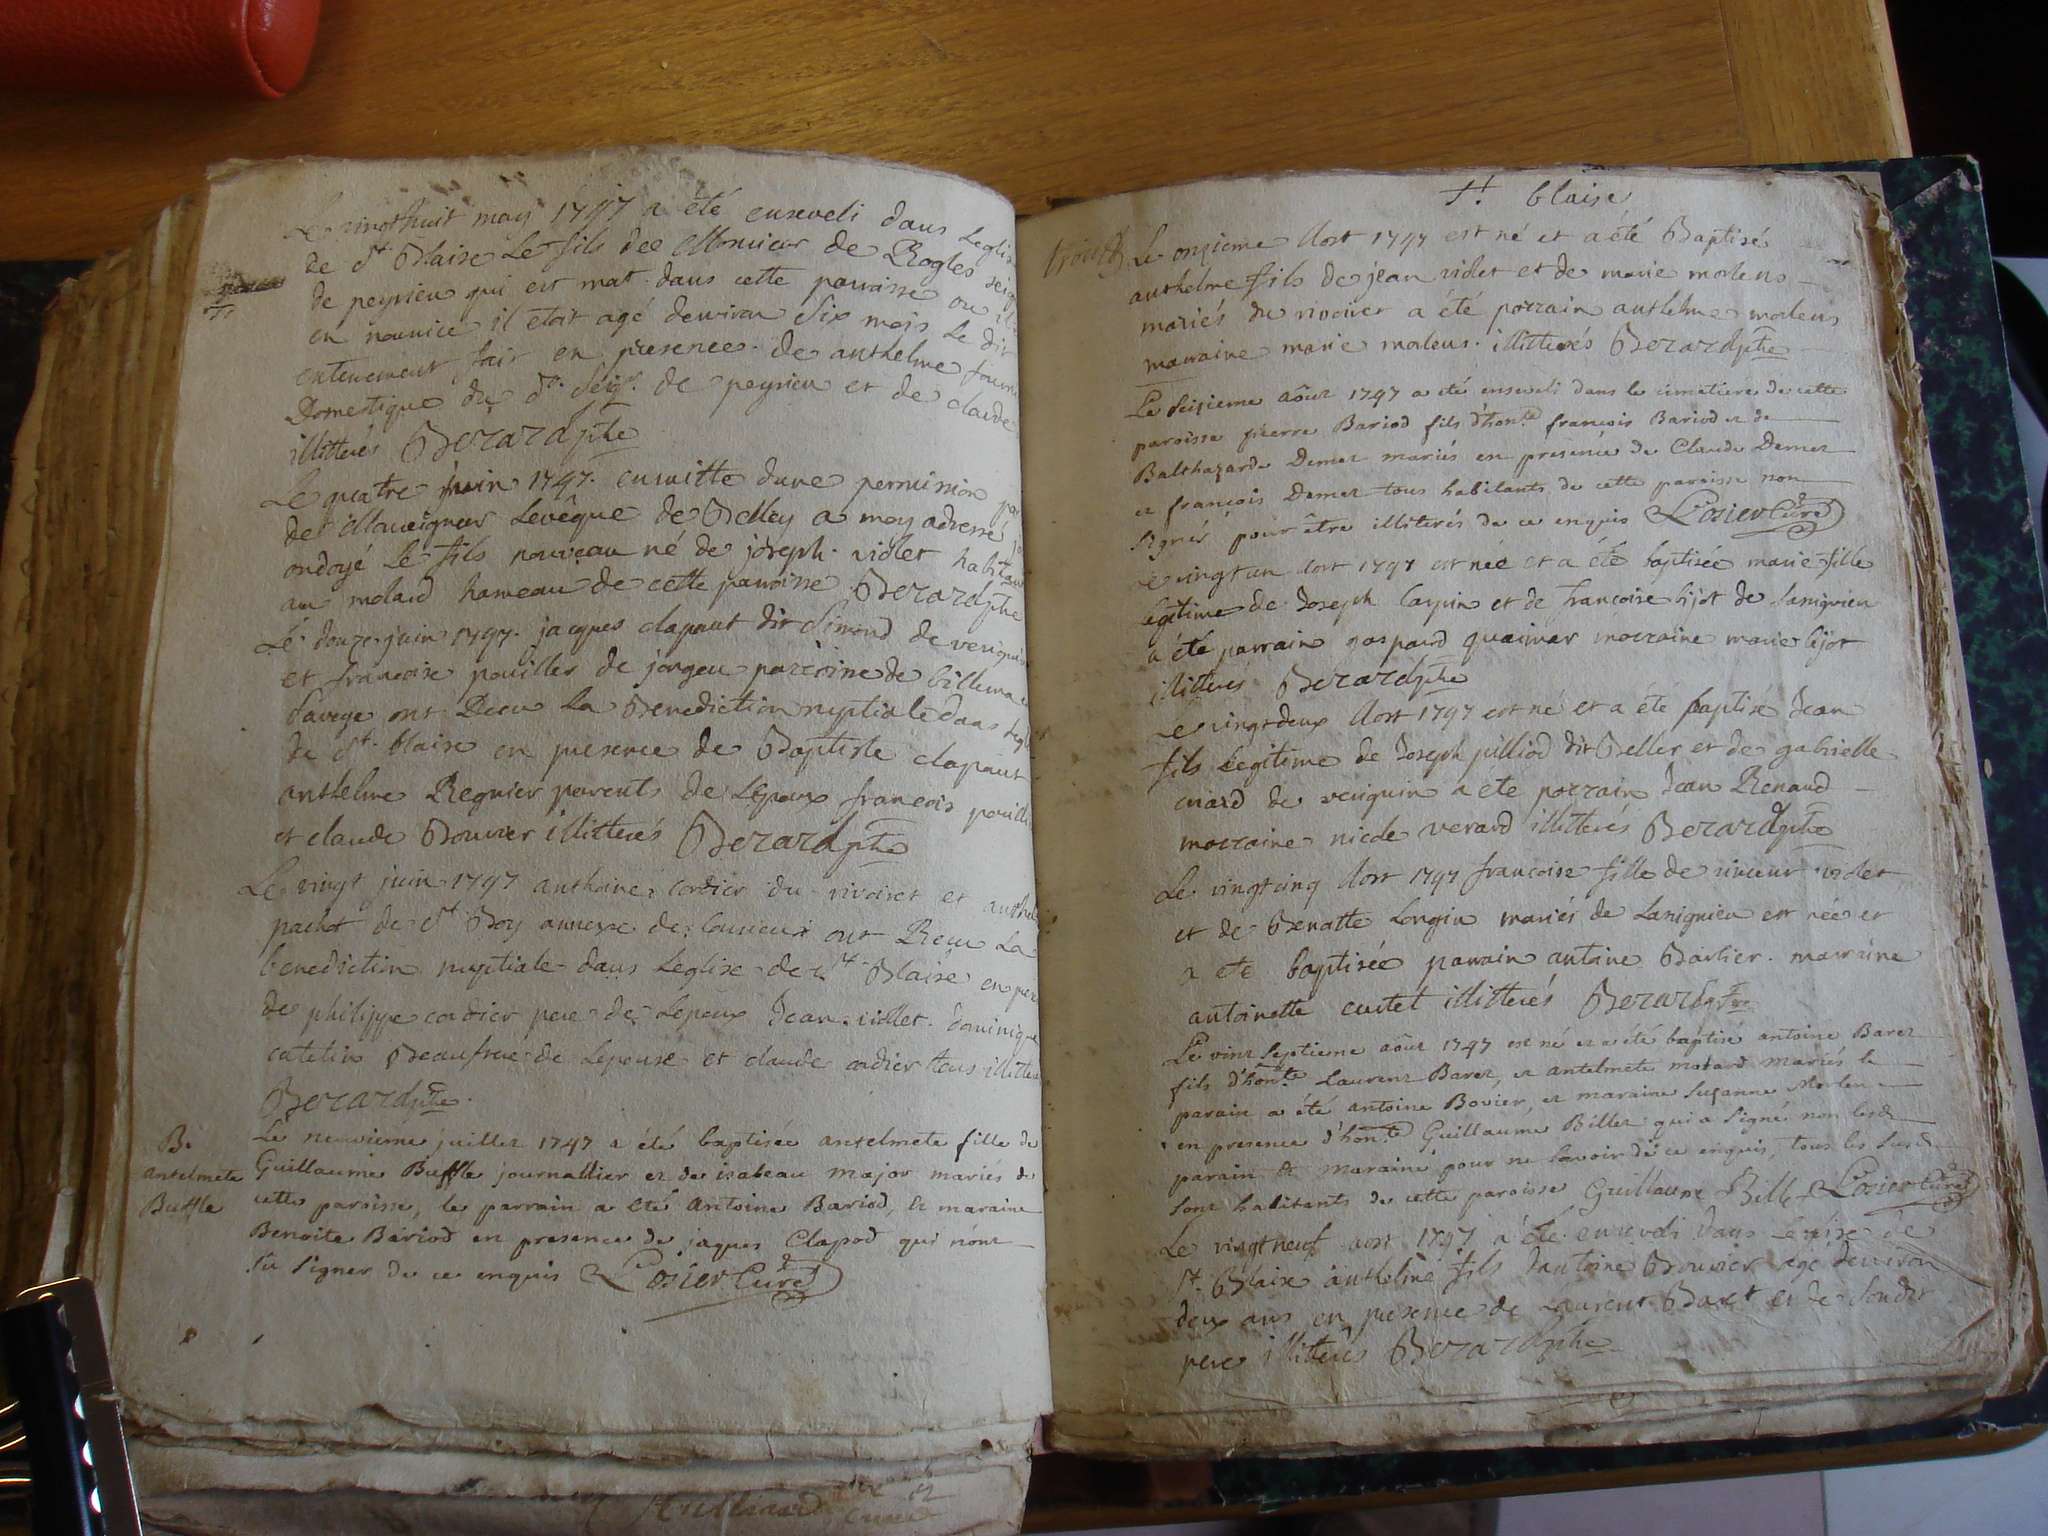 Le vingt huit may 1747 a été enseveli dans Legli
de St Blaise Le fils de Monsieur de Rogles seig
de peyrieu qui est mort dans cette parroisse ou il
en nourrice il etoit agé denviron Six mois Le dit
enterrement fait en presence de anthelme
Domestique du dt Seigr de peyrieu et de claude
illitterés Berard ptre
Le quatre juin 1747. ensuitte dune permission
de Monseigneur Levêque de Belley a moy adressé
ondoyé Le fils nouveau né de joseph violet habitan
au molard hameau de cette parroisse Berard ptre
Le douze juin 1747. jacques clapaut dit Simond de
et francoise pouiller de jongeu parroisse de
Savoye ont Recu La Benediction nuptiale dans
de St blaise en presence de Baptiste clapaut
anthelme Regnier parents de Lepoux francois
et claude Bouvier illitterés Berard ptre
Le vingt juin 1747 anthoine cordier du rivoiret et
pachot de St Boy annexe de ont Recu La
benediction nuptiale dans Leglise de St Blaise en
de philippe cordier pere de Lepoux Jean violet dominique
catelin Beaufrere de Lepouse et claude cordier tous
Berard ptre.
B.
antelmete
Buffle
Le neuvieme juillet 1747 a été baptisée antelmete fille de
Guillaume Buffle journallier et de isabeau major mariés de
cette paroisse, le parrain a été Antoine Bariod, et maraine
Benoite Bariod en presence de jaques Clapod qui n'ont
sû signer de ce enquis Losier Curé
St. blaise
Le onzieme Aost 1747 est né et a été Baptisé
anthelme fils de jean violet et de marie molens
mariés du rivoiret a été parrain anthelme molens
marraine marie molens. illitterés Berard ptre
Le Seizieme aôut 1747 a été enseveli dans le cimetiere de cette
paroisse pierre Bariod fils d'honte francois Bariod et de
Balthazarde Demet mariés en presence de Claude Demet
et francois Demet tous habitants de cette paroisse non
Signés pour être illiterés de ce enquis Losier Curé
Le vingt un Aost 1747 est née et a été baptisée marie fille
legitime de Joseph Carrin et de francoise bijot de
a été parrain gaspard marraine marie bijot
illitterés Berard ptre
Le vingtdeux Aost 1747 est né et a été baptisé Jean
fils Legitime de Joseph pilliod dit Beller et de gabrielle
de a été parrain Jean Renaud
marraine nicole verard illitterés Berard ptre
Le vingt cinq Aost 1747 francoise fille de vincent violet
et de Benatte Longin mariés de est née et
a été baptisée parrain antoine Barlier. marraine
antoinette curtet illitterés Berard ptre
Le vint septieme aôut 1747 est né et a été baptisé antoine Baret
fils d'honte Laurent Baret, et antelmete molard mariés le
parain a été antoine Bovier, et maraine Suzanne Morlen
en presence d'honte Guillaume Billet qui a Signé non lesd
parain & maraine pour ne savoir de ce enquis, tous les susd
sont habitants de cette paroisse Guillaume Bille Losier Curé
Le vingt neuf aost 1747 a été enseveli dans Leglise de
St. Blaise anthelme fils dantoine Bouvier agé denviron
deux ans en presence de Laurent Baret et de Sondit
pere illitterés Berard ptre